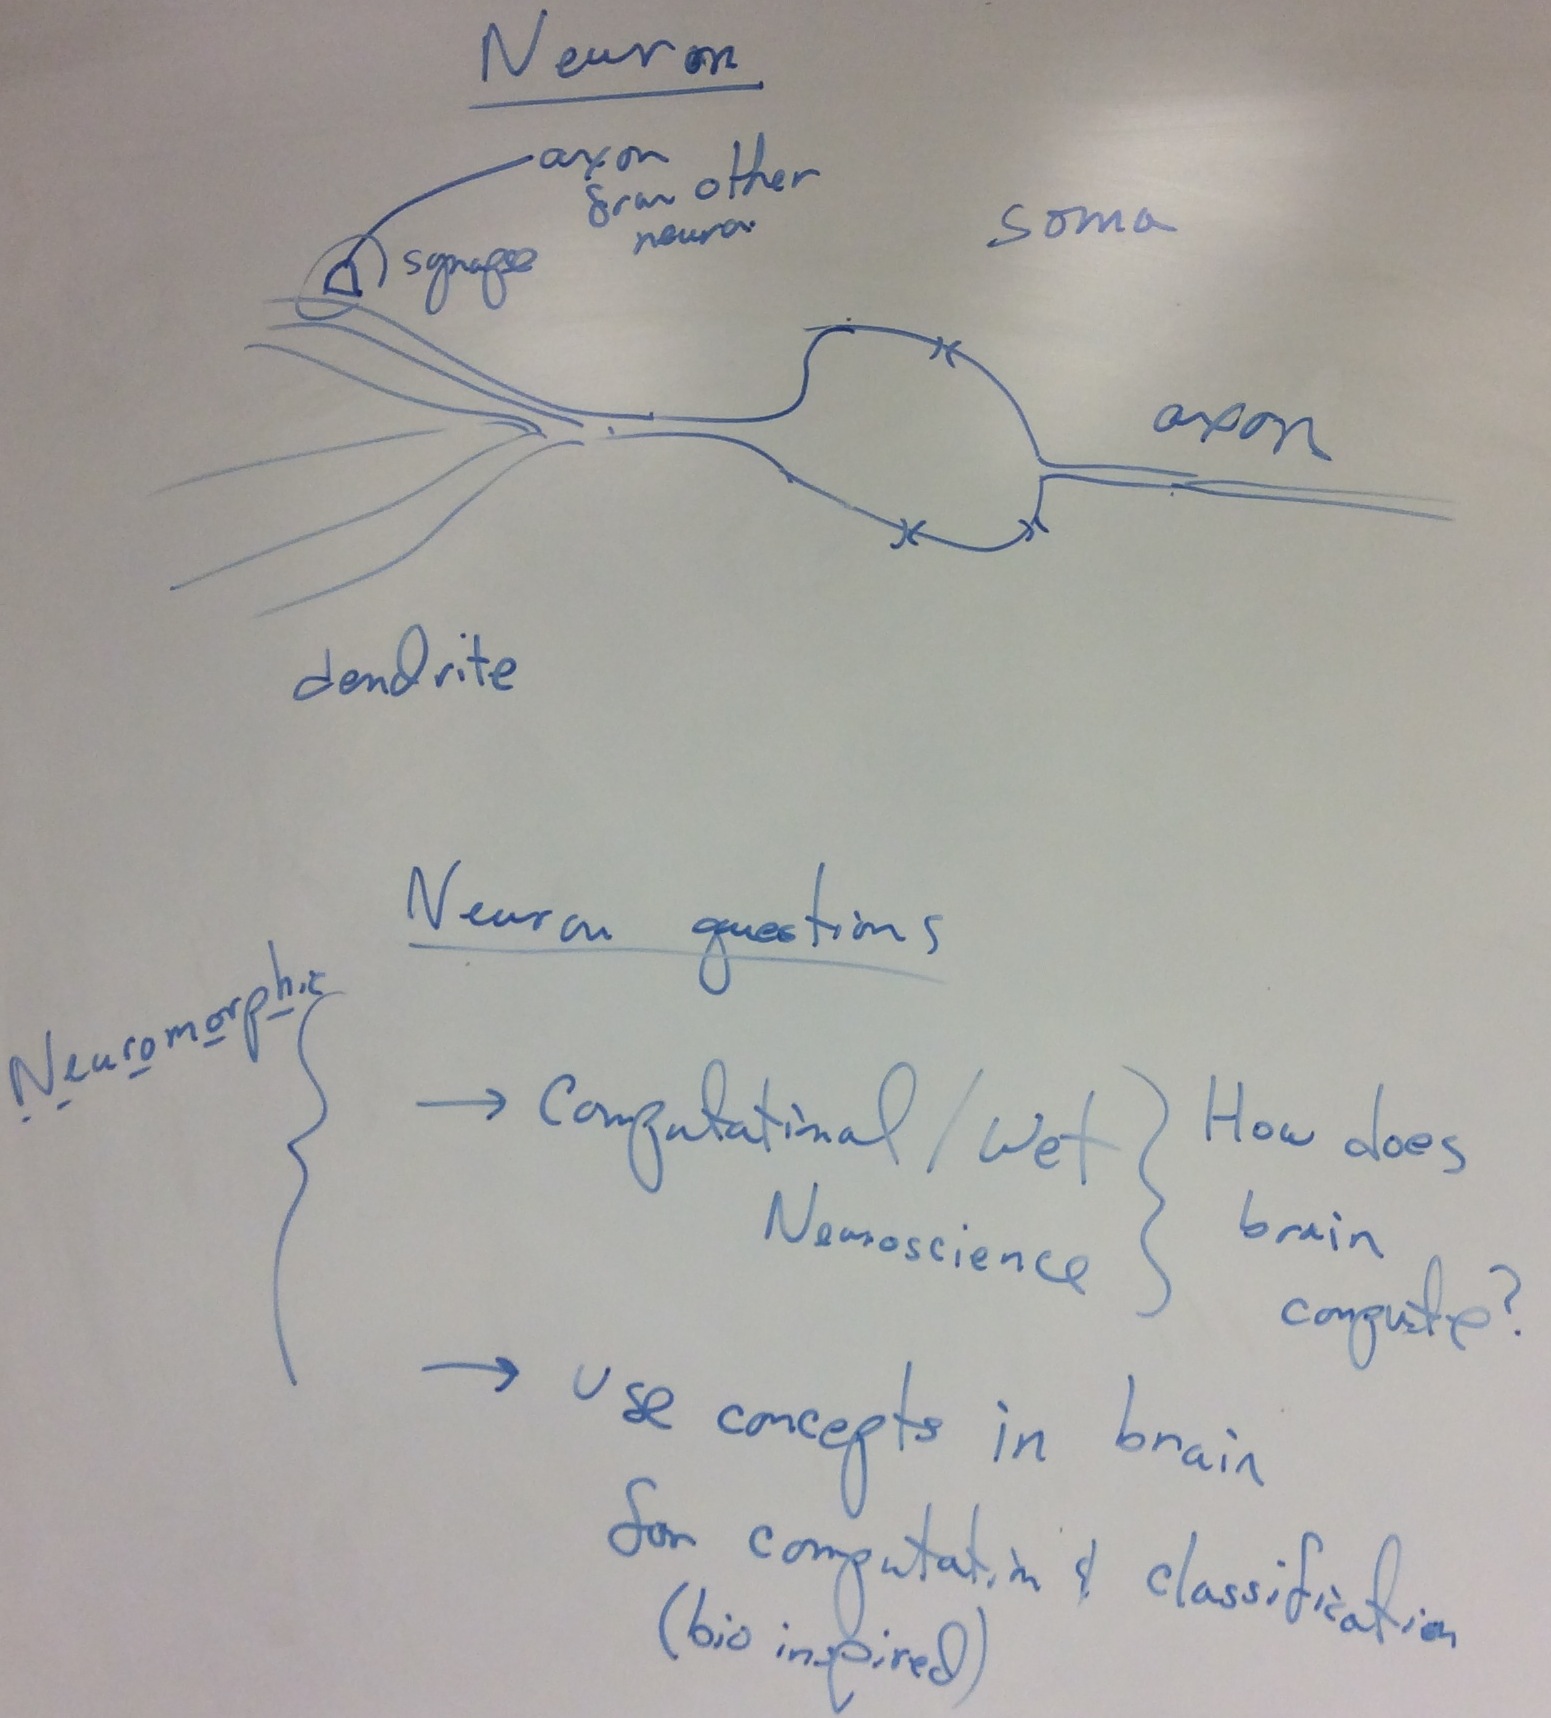 Neuron
axon
from other
neuron
synapse
soma
axon
dendrite
Neuron questions
Neuromorphic
→ Computational / Wet
Neuroscience
How does
brain
compute?
→ Use concepts in brain
for computation & classification
(bio inspired)